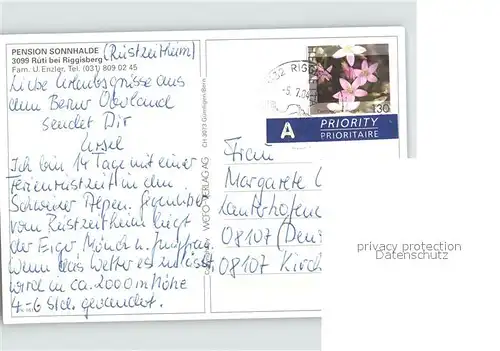 PENSION SONNHALDE (Rüstzeitheim)
3099 Rüti bei Riggisberg
Fam. U. Enzler, Tel. (031) 809 02 45
Liebe Urlaubsgrüsse aus
dem Berner Oberland
sendet Dir
Ursel
Ich bin 14 Tage mit einer
Ferienrüstzeit in den
Schweizer Alpen. Gegenüber
vom Rüstzeitheim liegt
der Eiger Mönch u. Jungfrau.
Wenn das Wetter es zulässt
wird in ca. 2000 m Höhe
4-6 Std. gewandert.
WEFO-VERLAG AG
CH-3073 Gümligen/Bern
RIGG
130
A PRIORITY
PRIORITAIRE
Frau
Margarete
08107
08107 Kirch
privacy protection
Datenschutz